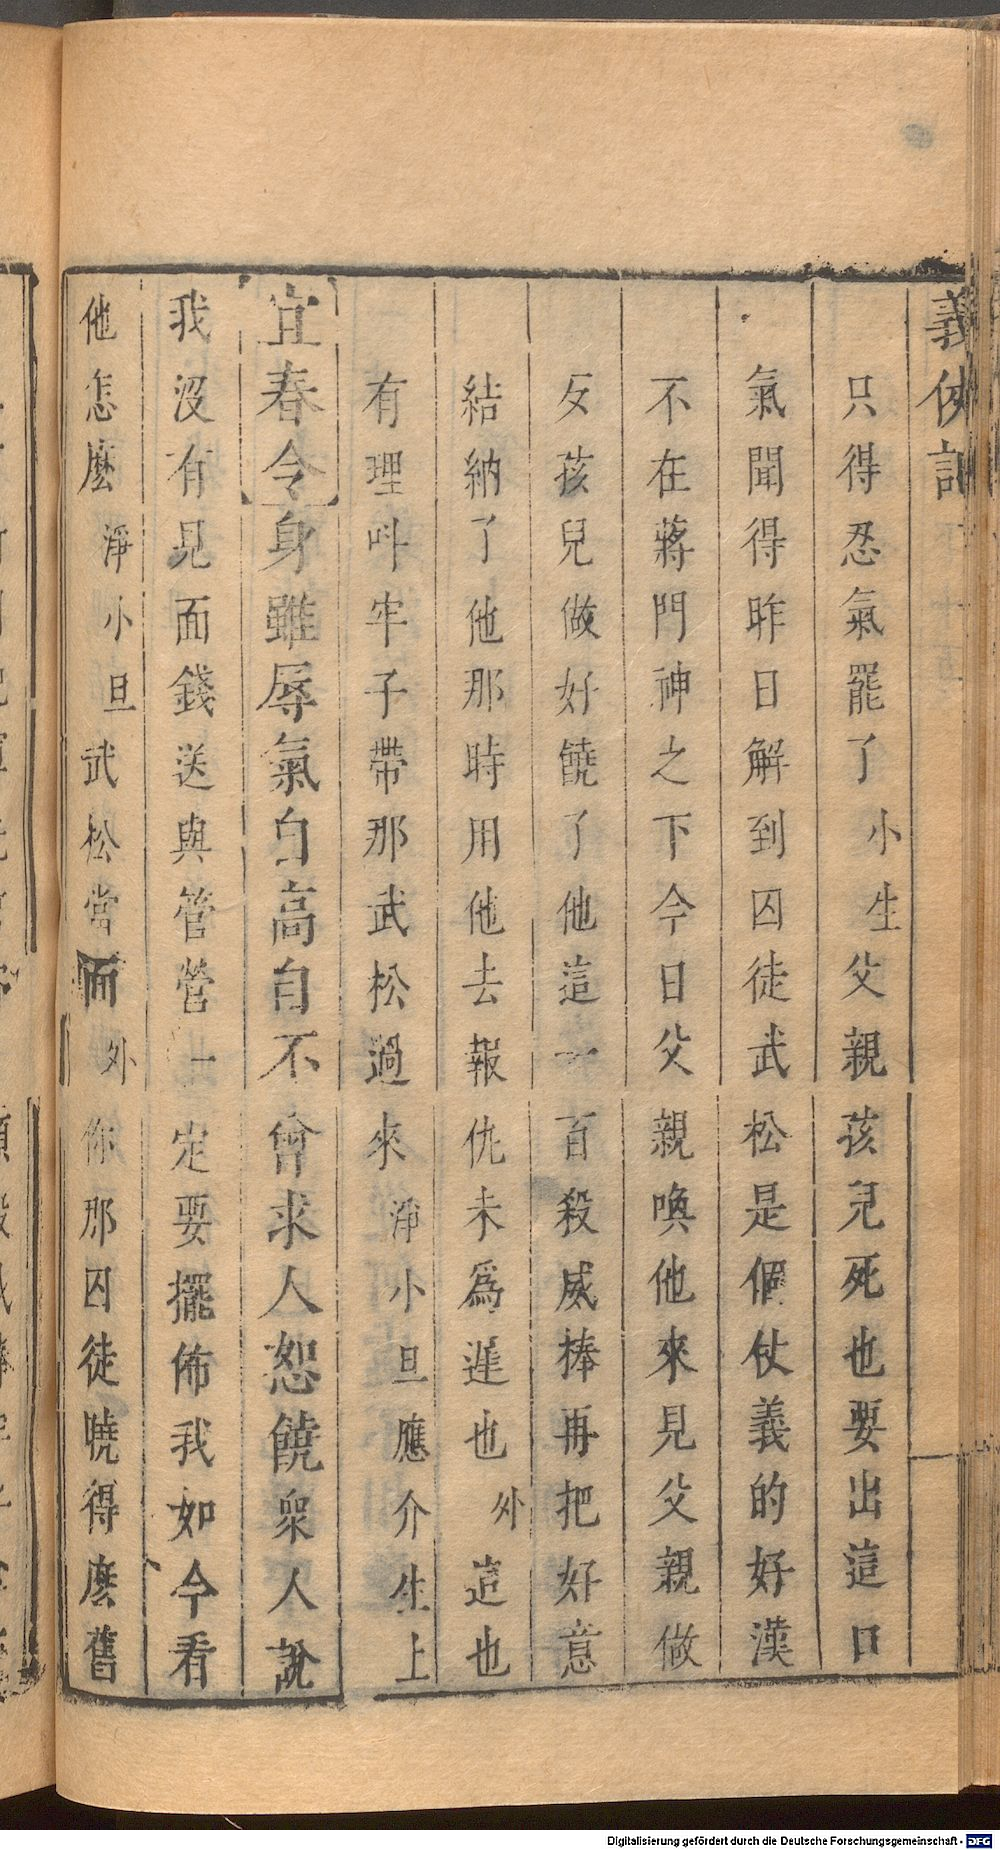 義俠記
只得忍氣罷了小生父親孩兒死也要出這口
氣聞得昨日解到囚徒武松是個仗義的好漢
不在蔣門神之下今日父親喚他來見父親做
反孩兒做好饒了他這一百殺威棒再把好意
結納了他那時用他去報仇未爲遲也外這也
有理叫牢子帶那武松過來淨小旦應介生上
宜春令身雖辱氣自高自不會求人恕饒衆人說
我沒有見面錢送與管營一定要擺佈我如今看
他怎麽淨小旦武松當面外你那囚徒曉得麽舊
Digitalisierung gefördert durch die Deutsche Forschungsgemeinschaft - DFG